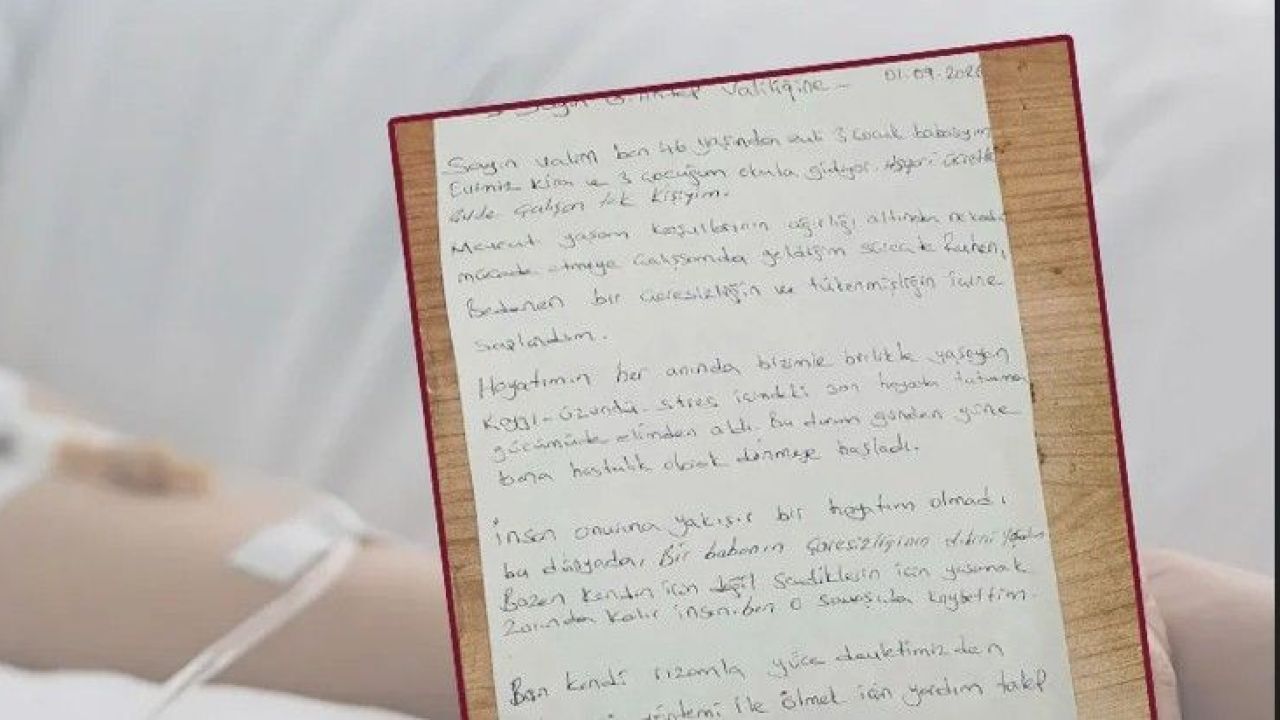 01.09.2026
Sayın Valiliğine
Sayın valim ben 46 yaşından evli 3 çocuk babasıyım
Evimiz kira ve 3 çocuğum okula gidiyor. Asgari ücretle
Evde çalışan tek kişiyim.
Mevcut yaşam koşullarının ağırlığı altında ne kadar
mücade etmeye çalışsamda geldiğim süreçte Ruhen,
Bedenen bir çaresizliğin ve tükenmişliğin içine
saplandım.
Hayatımın her anında bizimle birlikte yaşayan
Kaygı-üzüntü-stres içimdeki son hayata tutunma
gücümüde elimden aldı. Bu durum günden güne
bana hastalık olarak dönmeye başladı.
İnsan onuruna yakışır bir hayatım olmadı
bu dünyada, Bir babanın çaresizliğinin dibini
Bazen kendin için değil Sevdiklerin için yaşamak
Zorunda kalır insan. ben o savaşıda kaybettim.
Ben kendi rızamla yüce devletimizden
yöntemi ile ölmek için yardım talep